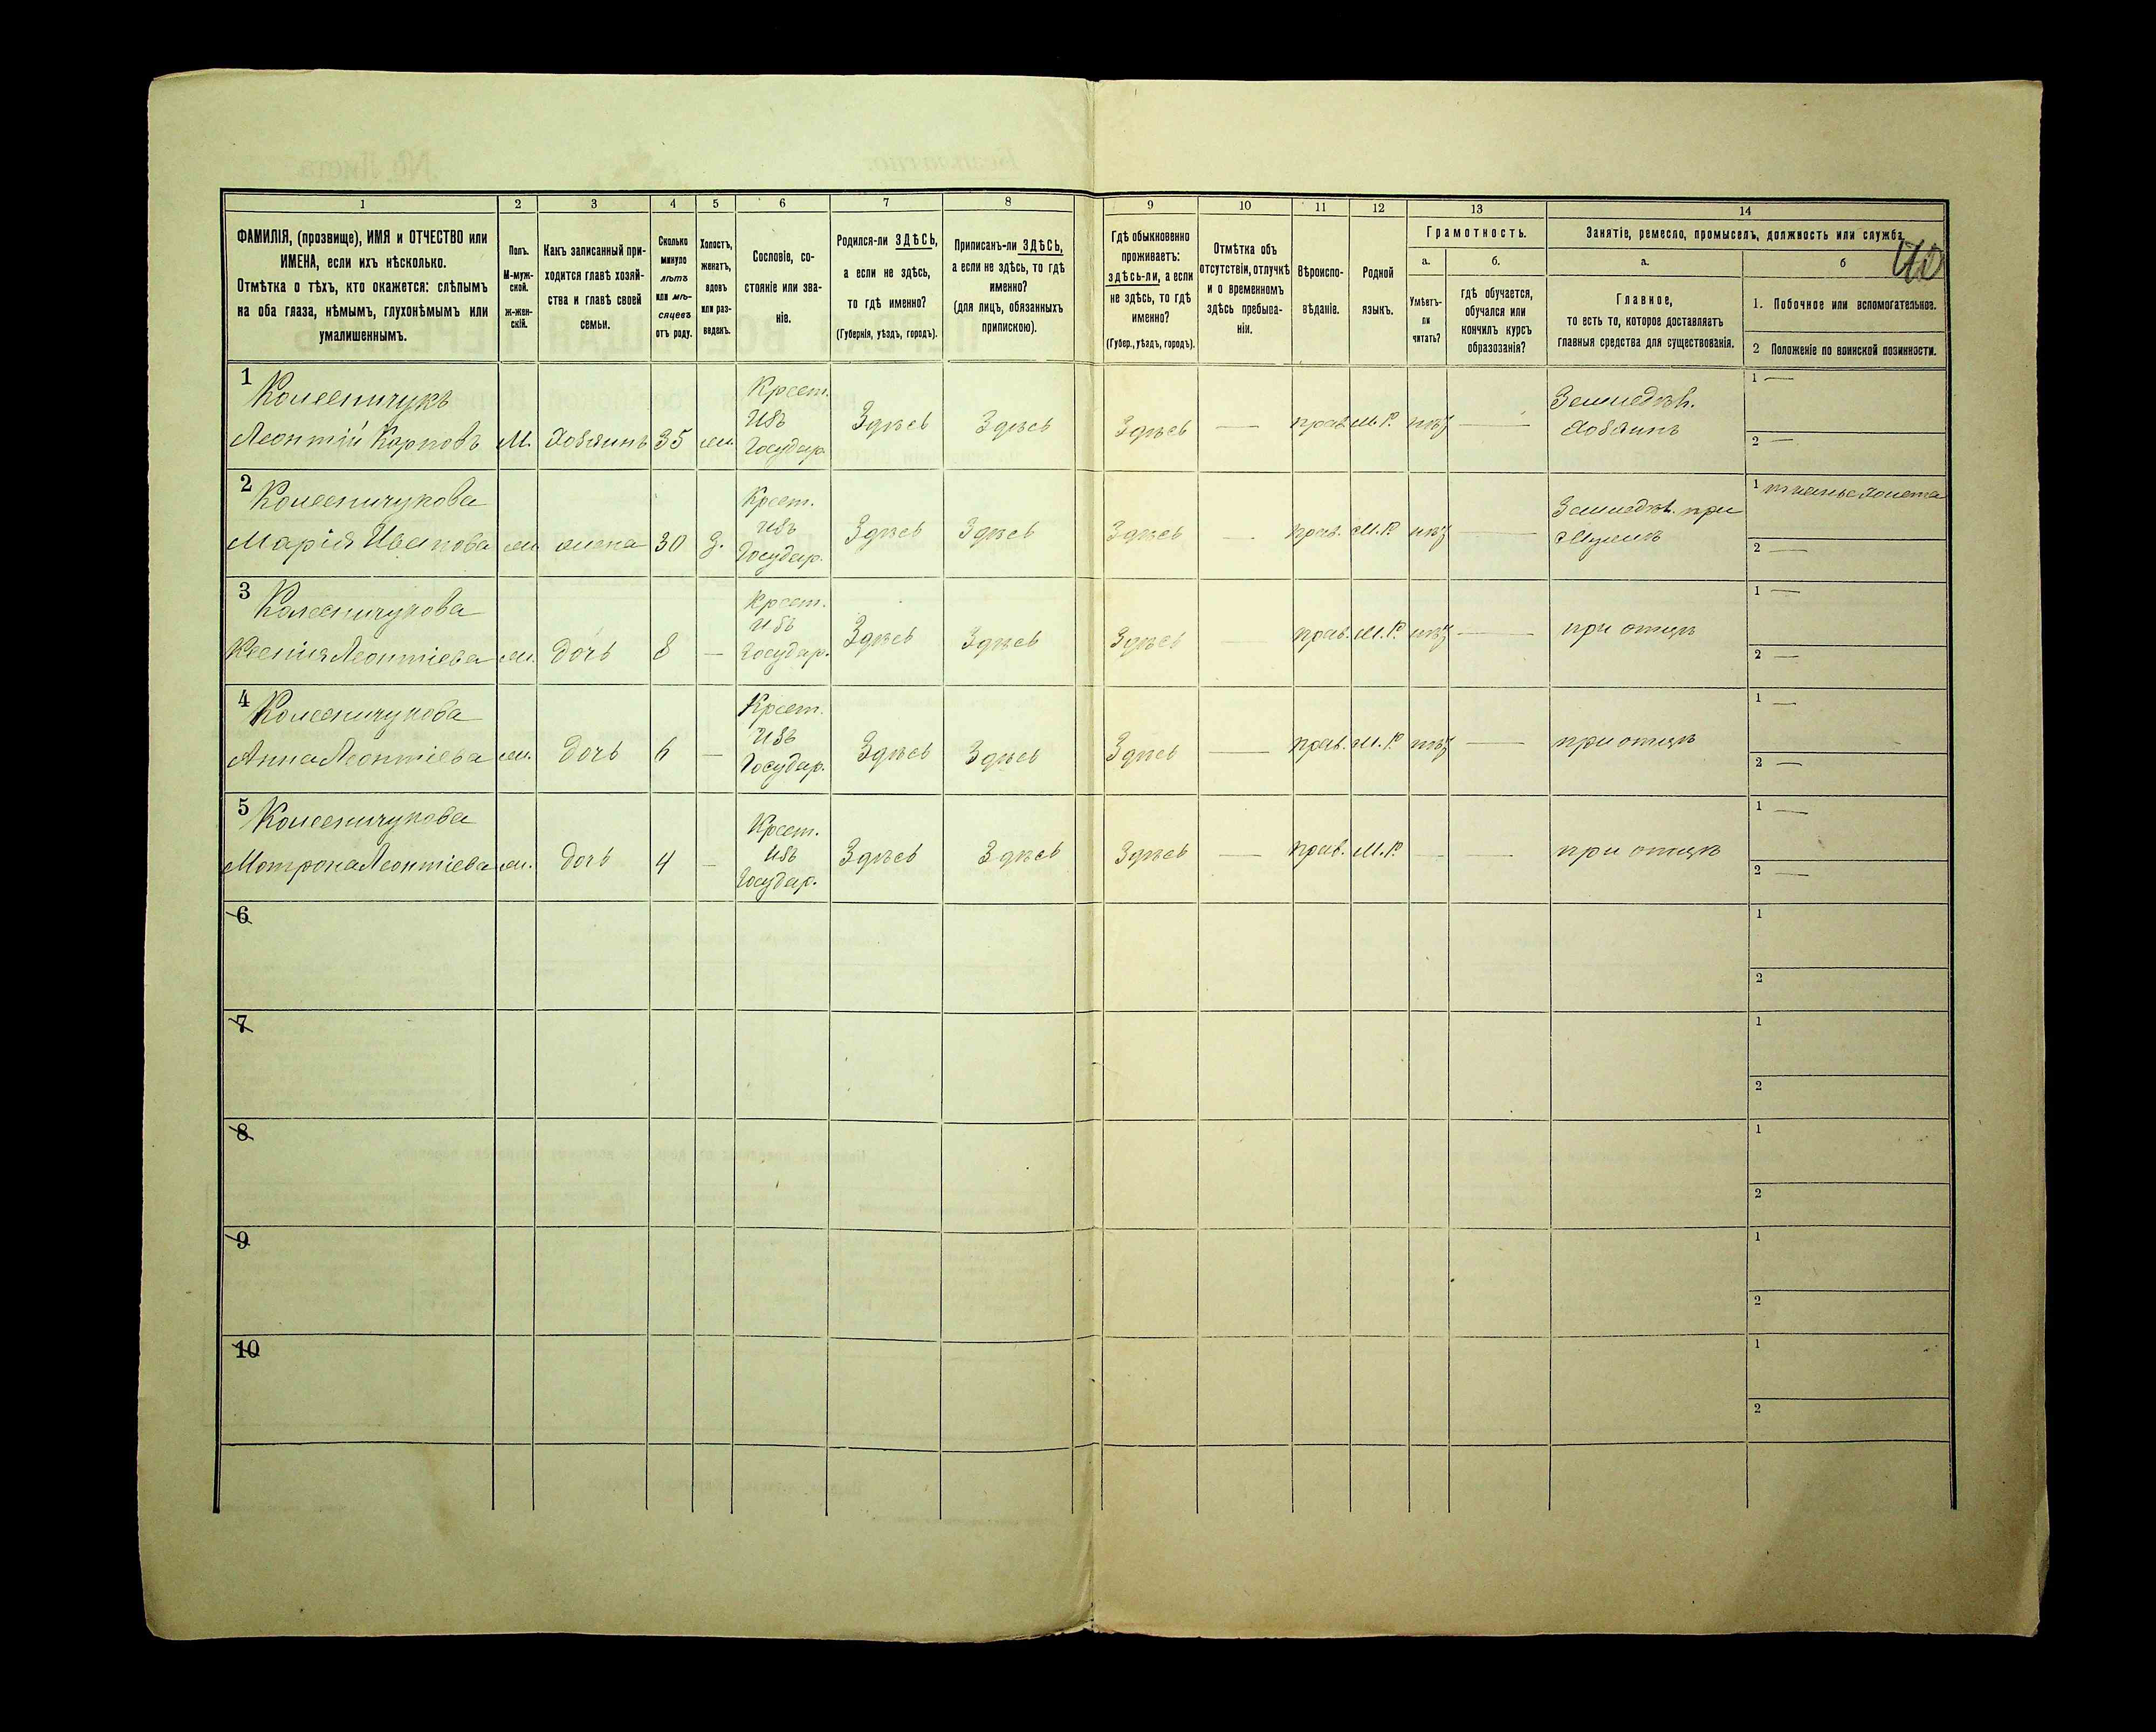 1 2 3 4 5 6 7 8 9 10 11 12 13 14
ФАМИЛІЯ, (прозвище), ИМЯ и ОТЧЕСТВО или
ИМЕНА, если ихъ нѣсколько.
Отмѣтка о тѣхъ, кто окажется: слѣпымъ
на оба глаза, нѣмымъ, глухонѣмымъ или
умалишеннымъ.
Полъ.
М-муж-
ской.
Ж-жен-
скій.
Какъ записанный при-
ходится главѣ хозяй-
ства и главѣ своей
семьи.
Сколько
минуло
лѣтъ
или мѣ-
сяцевъ
отъ роду.
Холостъ,
женатъ,
вдовъ
или раз-
веденъ.
Сословіе, со-
стояніе или зва-
ніе.
Родился-ли ЗДѢСЬ,
а если не здѣсь,
то гдѣ именно?
(Губернія, уѣздъ, городъ).
Приписанъ-ли ЗДѢСЬ,
а если не здѣсь, то гдѣ
именно?
(для лицъ, обязанныхъ
припискою).
Гдѣ обыкновенно
проживаетъ:
здѣсь-ли, а если
не здѣсь, то гдѣ
именно?
(Губер., уѣздъ, городъ).
Отмѣтка объ
отсутствіи, отлучкѣ
и о временномъ
здѣсь пребыва-
ніи.
Вѣроиспо-
вѣданіе.
Родной
языкъ.
Грамотность.
а.
Умѣетъ-
ли
читать?
б.
гдѣ обучается,
обучался или
кончилъ курсъ
образованія?
Занятіе, ремесло, промыселъ, должность или служба.
40
а.
Главное,
то есть то, которое доставляетъ
главныя средства для существованія.
б
1. Побочное или вспомогательное.
2 Положеніе по воинской повинности.
1 Колесничукъ
Леонтій Карповъ М. Хозяинъ 35 ж. Крест. Изъ Государ. Здѣсь Здѣсь Здѣсь — прав. М.Р. нѣт — Земледѣл. Хозяинъ 1 — 2 —
2 Колесничукова
Марія Иванова ж жена 30 з. Крест. Изъ Государ. Здѣсь Здѣсь Здѣсь — прав. М.Р. нѣт — Земледѣл. при Мужѣ 1 тканье холста 2 —
3 Колесничукова
Ксенія Леонтіева ж. дочь 8 — Крест. Изъ Государ. Здѣсь Здѣсь Здѣсь — прав. М.Р. нѣт — при отцѣ 1 — 2 —
4 Колесничукова
Анна Леонтіева ж. дочь 6 — Крест. Изъ Государ. Здѣсь Здѣсь Здѣсь — прав. М.Р. нѣт — при отцѣ 1 — 2 —
5 Колесничукова
Мотрона Леонтіева ж. дочь 4 — Крест. Изъ Государ. Здѣсь Здѣсь Здѣсь — прав. М.Р. — — при отцѣ 1 — 2 —
6 1 2
7 1 2
8 1 2
9 1 2
10 1 2